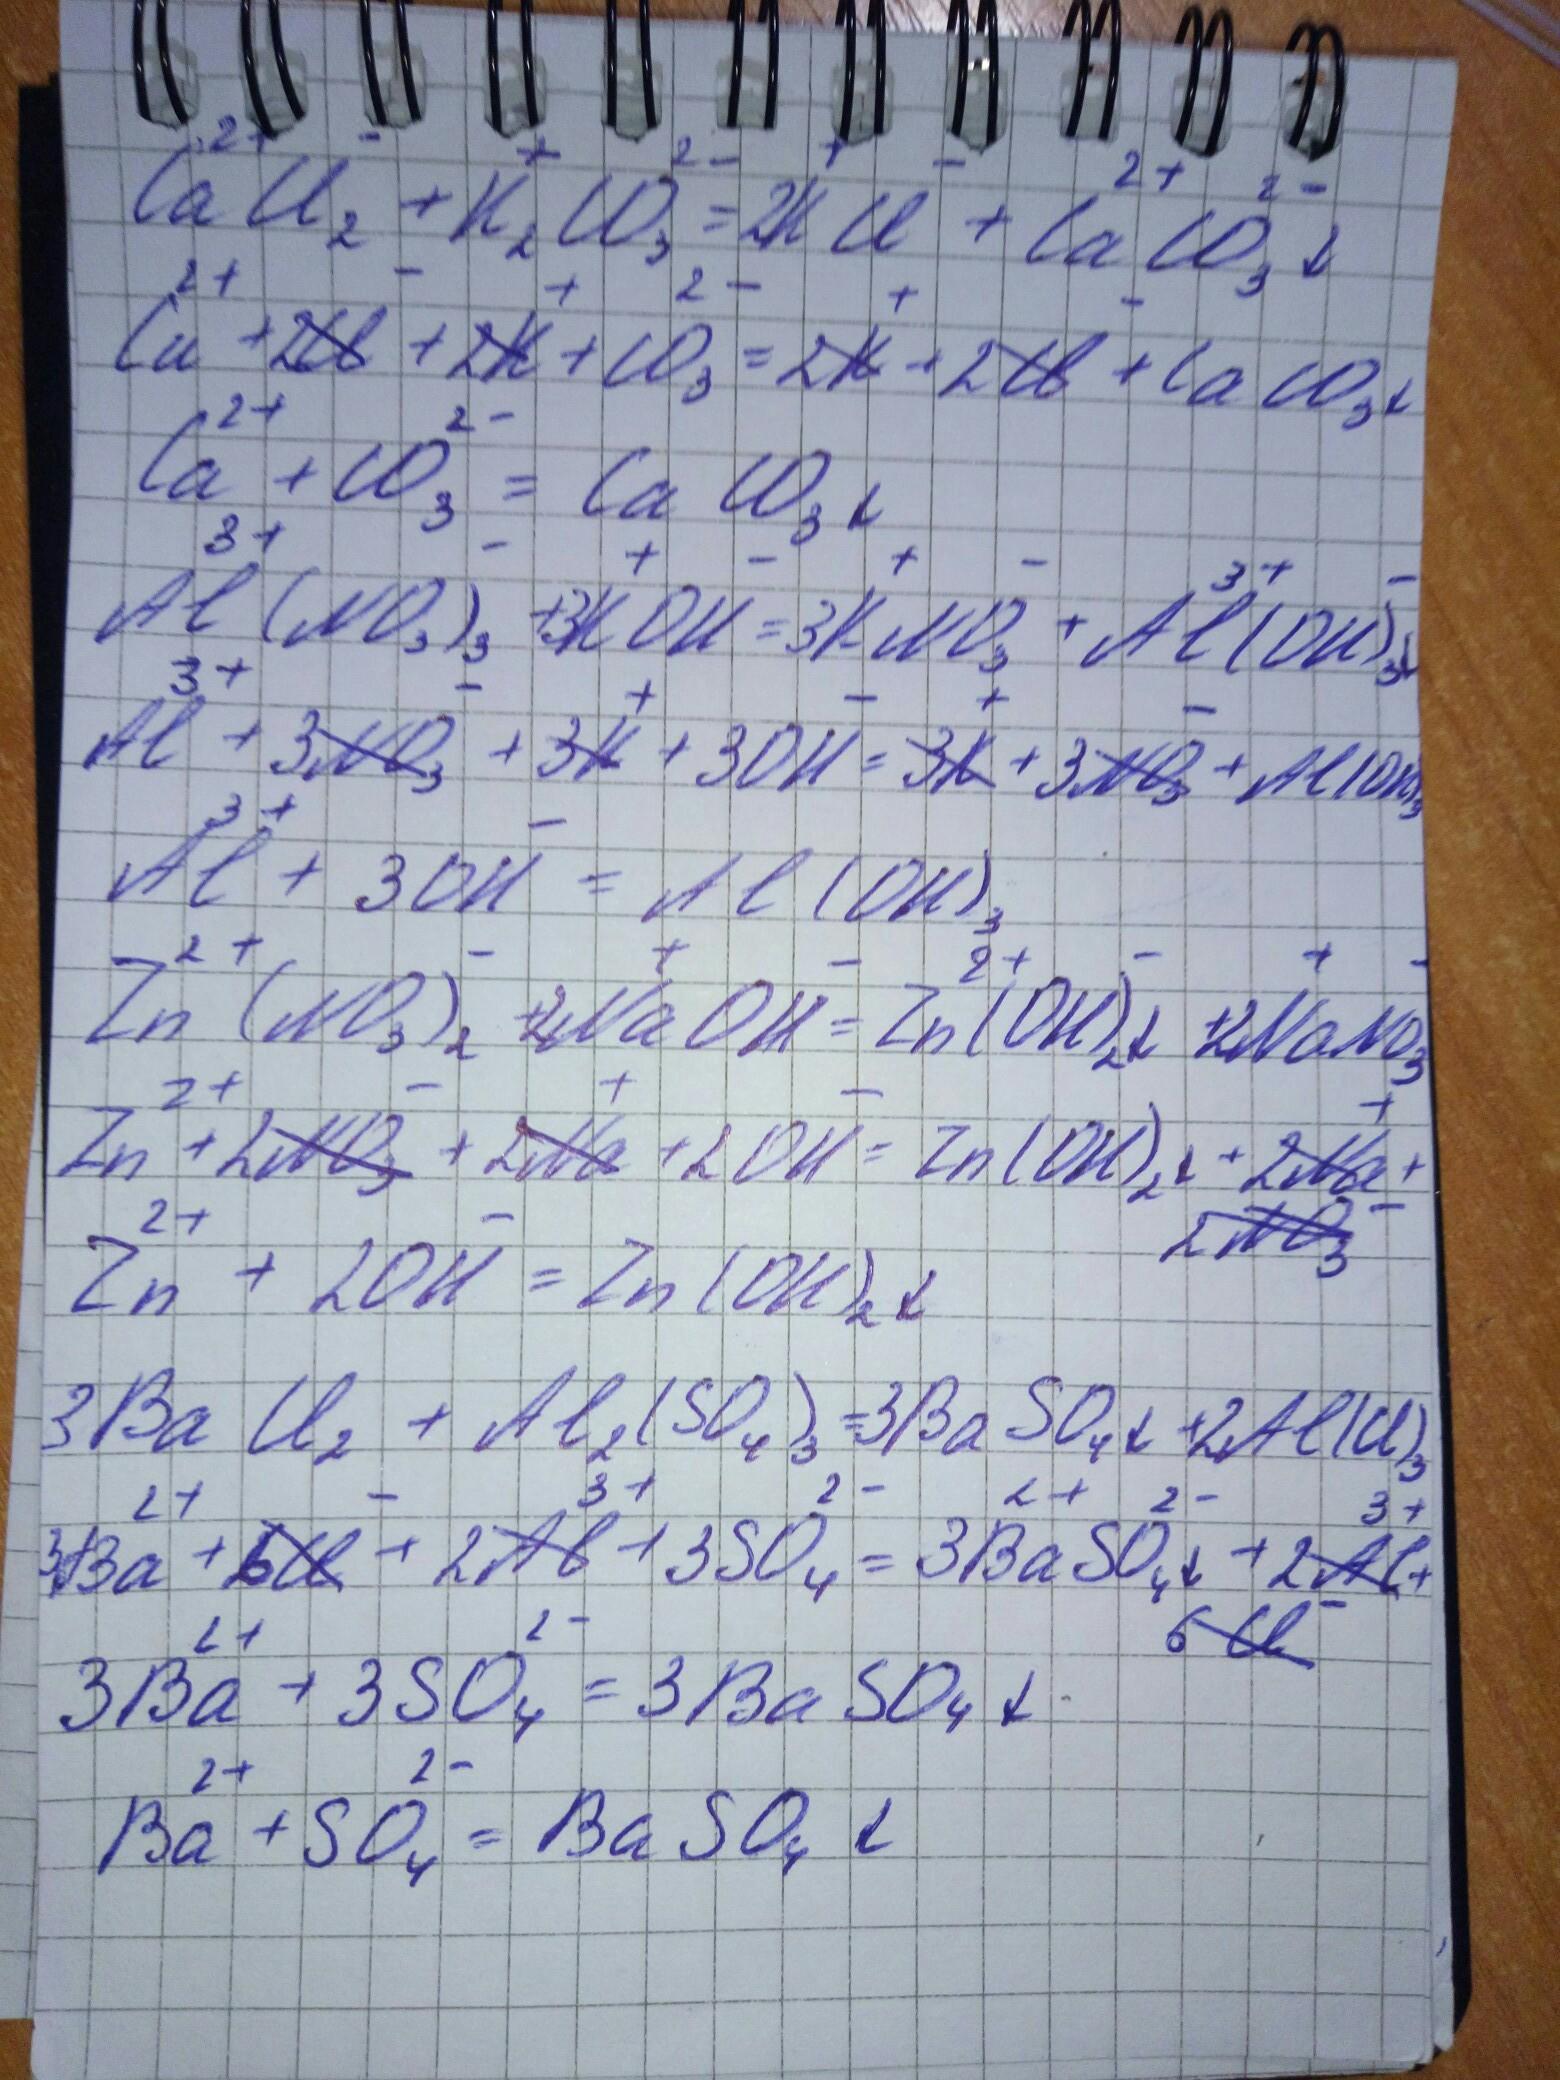 Ca²⁺Cl₂⁻ + K₂⁺CO₃²⁻ = 2K⁺Cl⁻ + Ca²⁺CO₃²⁻↓
Ca²⁺ + 2Cl⁻ + 2K⁺ + CO₃²⁻ = 2K⁺ + 2Cl⁻ + CaCO₃↓
Ca²⁺ + CO₃²⁻ = CaCO₃↓
Al³⁺(NO₃)₃⁻ + 3K⁺OH⁻ = 3K⁺NO₃⁻ + Al³⁺(OH)₃⁻↓
Al³⁺ + 3NO₃⁻ + 3K⁺ + 3OH⁻ = 3K⁺ + 3NO₃⁻ + Al(OH)₃
Al³⁺ + 3OH⁻ = Al(OH)₃
Zn²⁺(NO₃)₂⁻ + 2Na⁺OH⁻ = Zn²⁺(OH)₂⁻↓ + 2Na⁺NO₃⁻
Zn²⁺ + 2NO₃⁻ + 2Na⁺ + 2OH⁻ = Zn(OH)₂↓ + 2Na⁺ +
2NO₃⁻
Zn²⁺ + 2OH⁻ = Zn(OH)₂↓
3BaCl₂ + Al₂(SO₄)₃ = 3BaSO₄↓ + 2Al(Cl)₃
3Ba²⁺ + 6Cl⁻ + 2Al³⁺ + 3SO₄²⁻ = 3Ba²⁺SO₄²⁻↓ + 2Al³⁺ +
6Cl⁻
3Ba²⁺ + 3SO₄²⁻ = 3BaSO₄↓
Ba²⁺ + SO₄²⁻ = BaSO₄↓